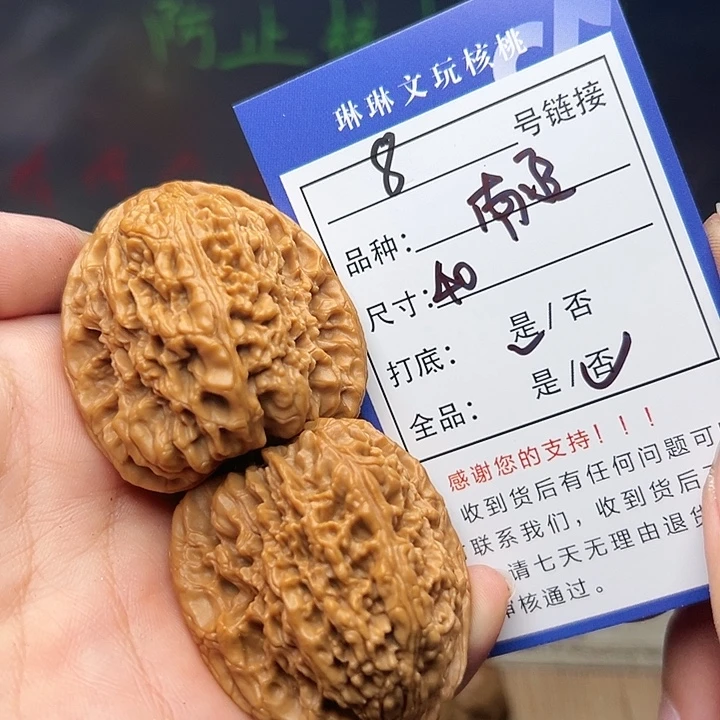 防止
琳琳文玩核桃
8 号链接
品种：南疆
尺寸：40
打底：是/否
全品：是/否
感谢您的支持！！！
收到货后有任何问题可
联系我们，收到货后
请七天无理由退货
审核通过。